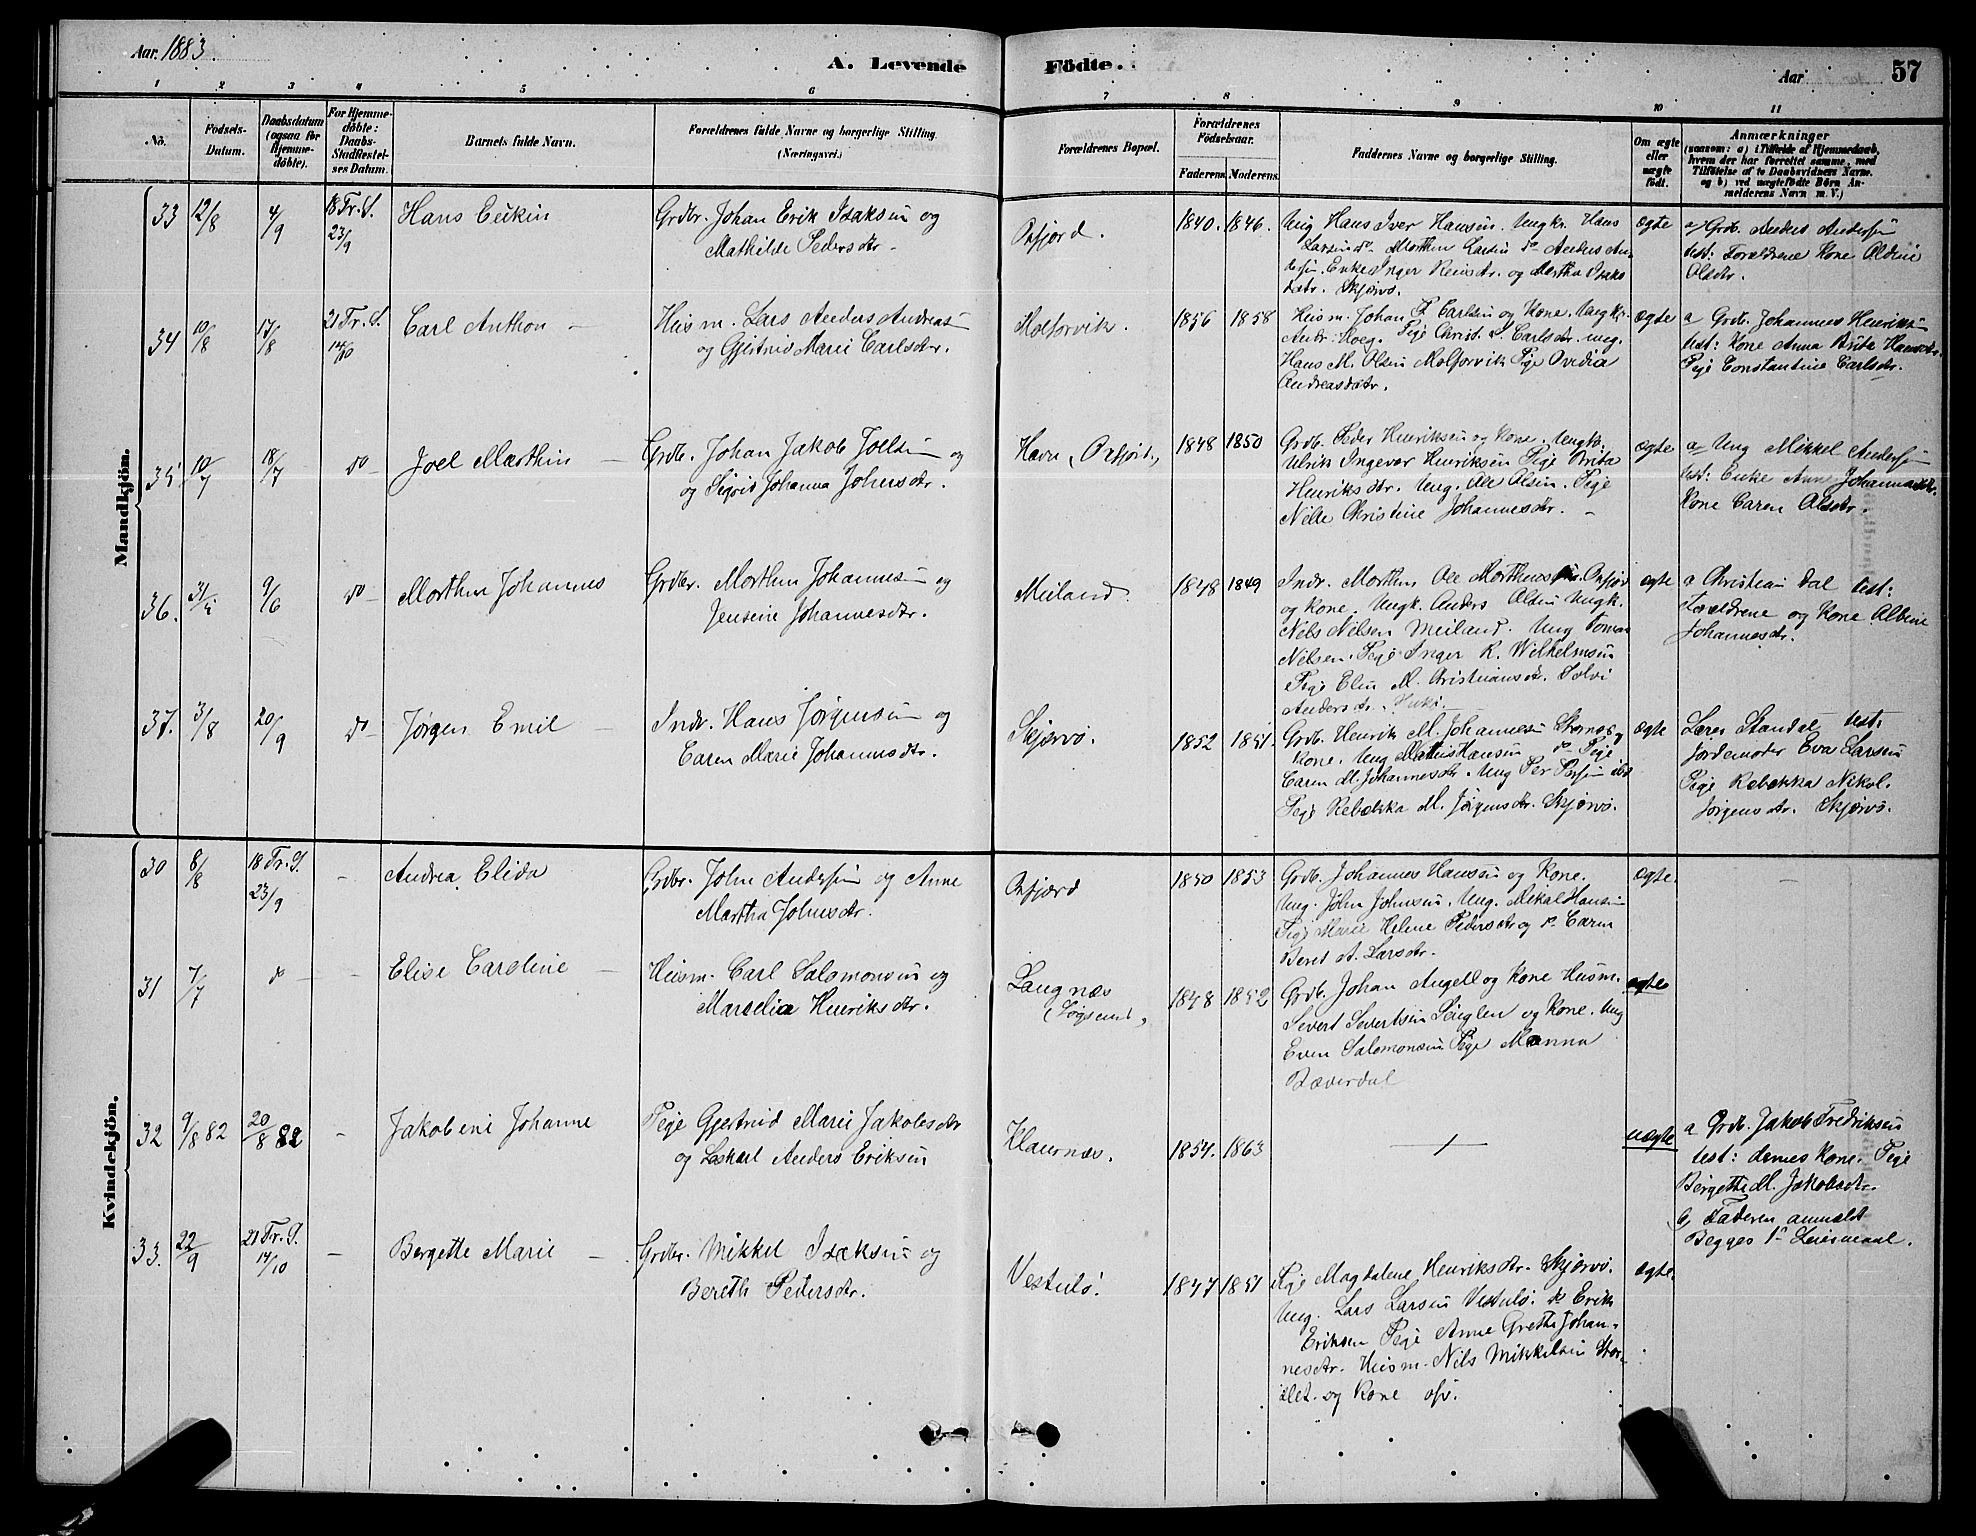 Aar 1883.
A. Levende
Födte.
Aar
57
1 2 3 4 5 6 7 8 9 10 11
No.
Födsels-
Datum.
Daabsdatum
(ogsaa for
Hjemme-
döbte).
For Hjemme-
döbte:
Daabs-
Stadfæstel-
ses Datum.
Barnets fulde Navn.
Forældrenes fulde Navne og borgerlige Stilling.
(Næringsvei.)
Forældrenes Bopæl.
Forældrenes
Födselsaar.
Faderens. Moderens.
Faddernes Navne og borgerlige Stilling.
Om ægte
eller
uægte
födt.
Anmærkninger
(saasom: a) i Tilfælde af Hjemmedaab,
hvem der har forrettet samme, med
Tilföielse af to Daabsvidners Navne,
og b) ved uægtefödte Börn An-
melderens Navn m. V.)
Mandkjön.
33 12/8 4/9 18 Tr. S.
23/9
Hans
Grdbr. Johan Erik Isaksen og
Mathilde Pedersdtr.
Oxfjord.
1840. 1846.
Ung Hans Iver Hansen. Ungkr. Hans
Larsen do Morthen Larsen do Anders An-
dersen. Enke Inger
og Martha Isaks
datr. Skjervø.
ægte
a Grdb. Anders Andersen
test: Forældrene Kone Aldine
Olsdtr.
34 10/8 17/8 21 Tr. S.
14/10
Carl Anthon
Husm. Lars Anders Andreas
og Gjertrud Marie Carlsdtr.
Molforvik.
1856 1858
Husm. Johan P. Carlsen og Kone. Ungkr.
Andr. Hoeg. Pige Christ. S. Carlsdtr. ung.
Hans M. Olsen Molforvik Pige Ovidia
Andreasdatr.
ægte
a Grdb. Johannes Henriksen
test: Kone Anna Brita Hansdtr.
Pige Constantine Carlsdtr.
35 10/7 18/7 do
Joel Marthin
Grdbr. Johan Jakob Joelsen og
og Sigrid Johanna Johnsdtr.
Havn, Oxfjord,
1848 1850
Grdb. Peder Henriksen og Kone. Ungk.
Ulrik Ingevar Henriksen Pige Brita
Henriksdtr. Ung. Ole Olsen. Pige
Nille Christine Johannesdtr.
ægte
a Ung Mikkel Andersen
test: Enke Anne Johannesdtr.
Kone Caren Olsdtr.
36. 31/5 9/6 do
Morthen Johannes
Grdbr. Morthen Johannesen og
Jensine Johannesdtr.
Meiland.
1848 1849
Indr. Morthen Ole Morthensen. Oxfjord
og Kone. Ungk. Anders Olsen Ungk.
Nels Nelsen Meiland. Ung Tomas
Nilsen. Pige Inger K. Wilhelmsen
Pige Elen M. Cristiansdtr. Solvi
Andersdtr.
ægte
a Christian Dal test:
Forældrene og Kone Albine
Johannesdtr.
37. 3/8 20/9 do
Jørgen Emil
Indr. Hans Jørgensen og
Caren Marie Johannesdtr.
Skjervø.
1852 1851.
Grdb. Henrik M. Johannesen og
Kone. Ung Mathis Hansen do Pige
Caren M. Johannesdtr. Ung Per
Pige Rebekka M. Jørgensdtr. Skjervø.
ægte
Lærer Standal test:
Jordemoder Eva Larsen
Pige Rebekka Nikol.
Jørgensdtr. Skjervø.
Kvindekjön.
30 8/8 18 Tr. S.
23/9
Andrea Elida
Grdbr. John Andersen og Anne
Martha Johnsdtr.
Oxfjord
1850 1853
Grdb. Johannes Hansen og Kone.
Ung. John Johnsen. Ung. Mikal Hansen
Pige Marie Helene Pedersdtr og do Caren
Beret A. Larsdtr.
ægte.
31 7/7 do
Elise Caroline
Husm. Carl Salomonsen og
Marselia Henriksdtr.
Laugnæs
(Løgsund,
1848 1852
Grdb. Johan Angell og Kone Husm.
Severt Severtsen og Kone. Ung
Even Salomonsen Pige Manna
Bæverdal
ægte
32 9/8 82 20/8 82
Jakobine Johanne
Pige Gjertrud Marie Jakobsdtr
og Anders Eriksen
1854. 1863
uægte
a Grdb. Jakob Fredriksen
test: dennes Kone. Pige
Bergette M. Jakobsdtr.
b, Faderen anmeldt
Begges 1ste Leiermaal.
33. 22/9 21 Tr. S.
14/10
Bergette Marie
Grdbr. Mikkel Isaksen og
Bereth Pedersdtr.
1847 1851
Pige Magdalene Henriksdtr. Skjervø.
Ung. Lars Larsen do Erik
Eriksen Pige Anne Grethe Johan-
nesdtr. Husm. Nils Mikkelsen Stor-
slet. og Kone osv.
ægte.